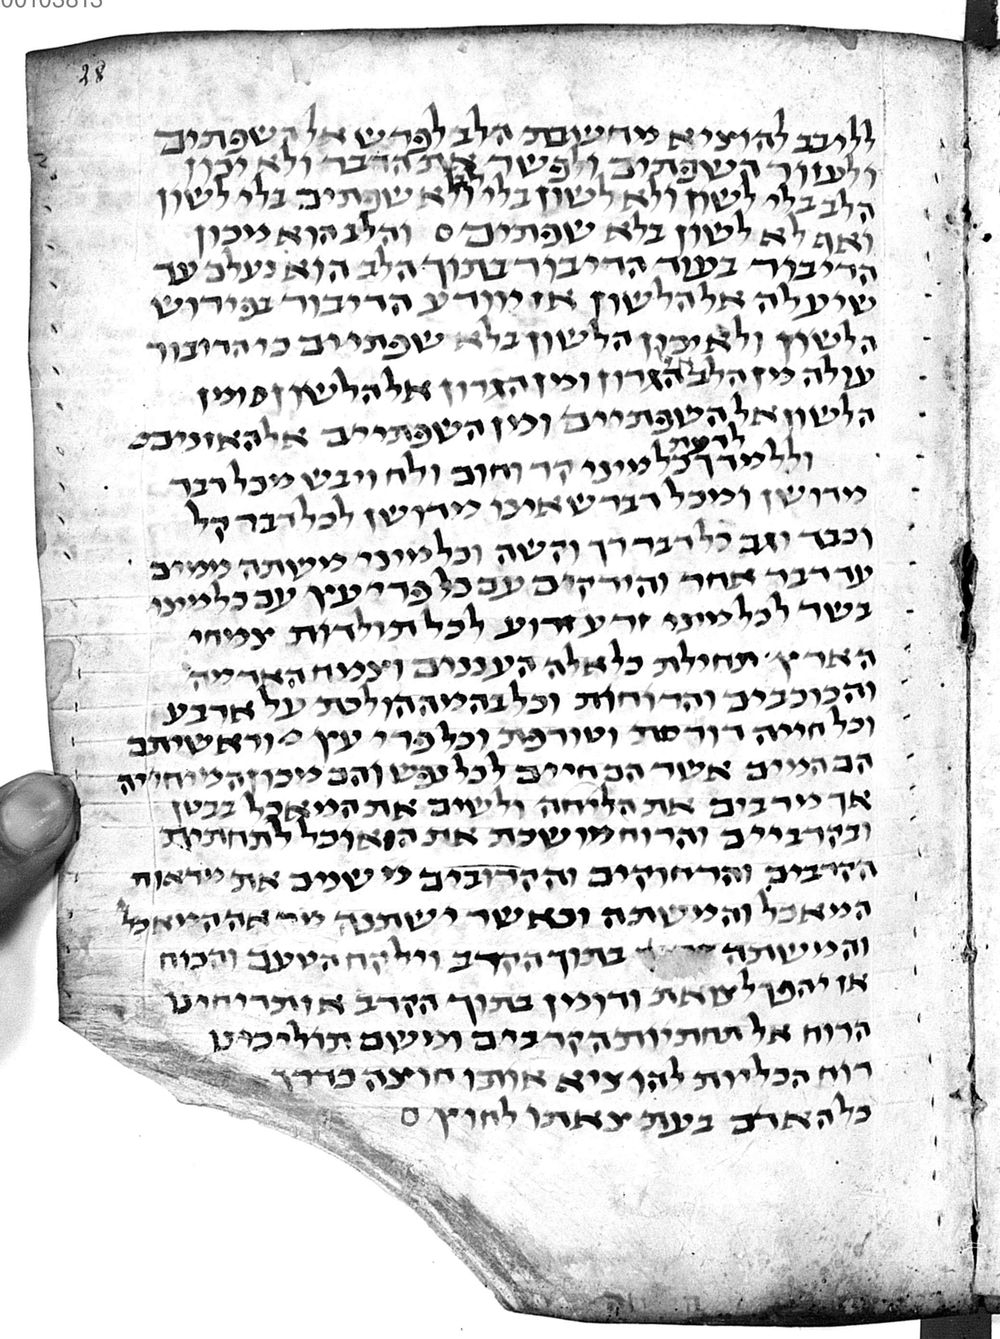 00103813
28
ללובב להוציא מחשבת הלב לפרש אל השפתים
ולעזור השפתים ולפשר את הדבר ולא יכון
הלב בלי לשון ולא לשון בלי לב ולא שפתים בלי לשון
ואף לא לשון בלא שפתים ס והלב הוא מכון
הדיבור בעוד הדיבור בתוך הלב הוא נעלם עד
שיעלה אל הלשון אז יוודע הדיבור בפירוש
הלשון ולא יכון הלשון בלא שפתיים כי הדיבור
עולה מן הלב הגרון ומן הגרון אל הלשון ס ומן
הלשון אל השפתיים ומן השפתיים אל האזנים ס
לדעת
וללמדך כל מיני קר וחום ולח ויבש מכל דבר
מדושן ומכל דבר שאינו מדושן לכל דבר קל
וכבד וגב כל דבר רך וקשה וכל מיני משתה ממים
עד דבר אחר והירקים עם כל פרי עץ עם כל מיני
בשר לכל מיני זרע זרוע לכל תולדות צמחי
הארץ תחילת כל אלה העננים וצמח האדמה
והכוכבים והרוחות וכל בהמה הולכת על ארבע
וכל חייה דורסת וטורפת וכל פרי עץ ס וראשיתם
הם המים אשר הם חיים לכל נפש והם מכון המיחייה
אך מרבים את הליחה ולשום את המאכל בבטן
ובקרביים והרוח מושכת את האוכל לתחתית
הקרבים והרחוקים והקרובים משמם את מראות
המאכל והמשתה וכאשר ישתנה מראה המאכל
והמשתה בתוך הקרב וילקח הטעם והכוח
אז יהפך לצאת ודומן בתוך הקרב אז תריחינו
הרוח אל תחתיות הקרבים ומשם תוליכינו
רוח הכליות להוציא אותו חוצה כדרך
כל האדם בעת צאתו לחוץ ס